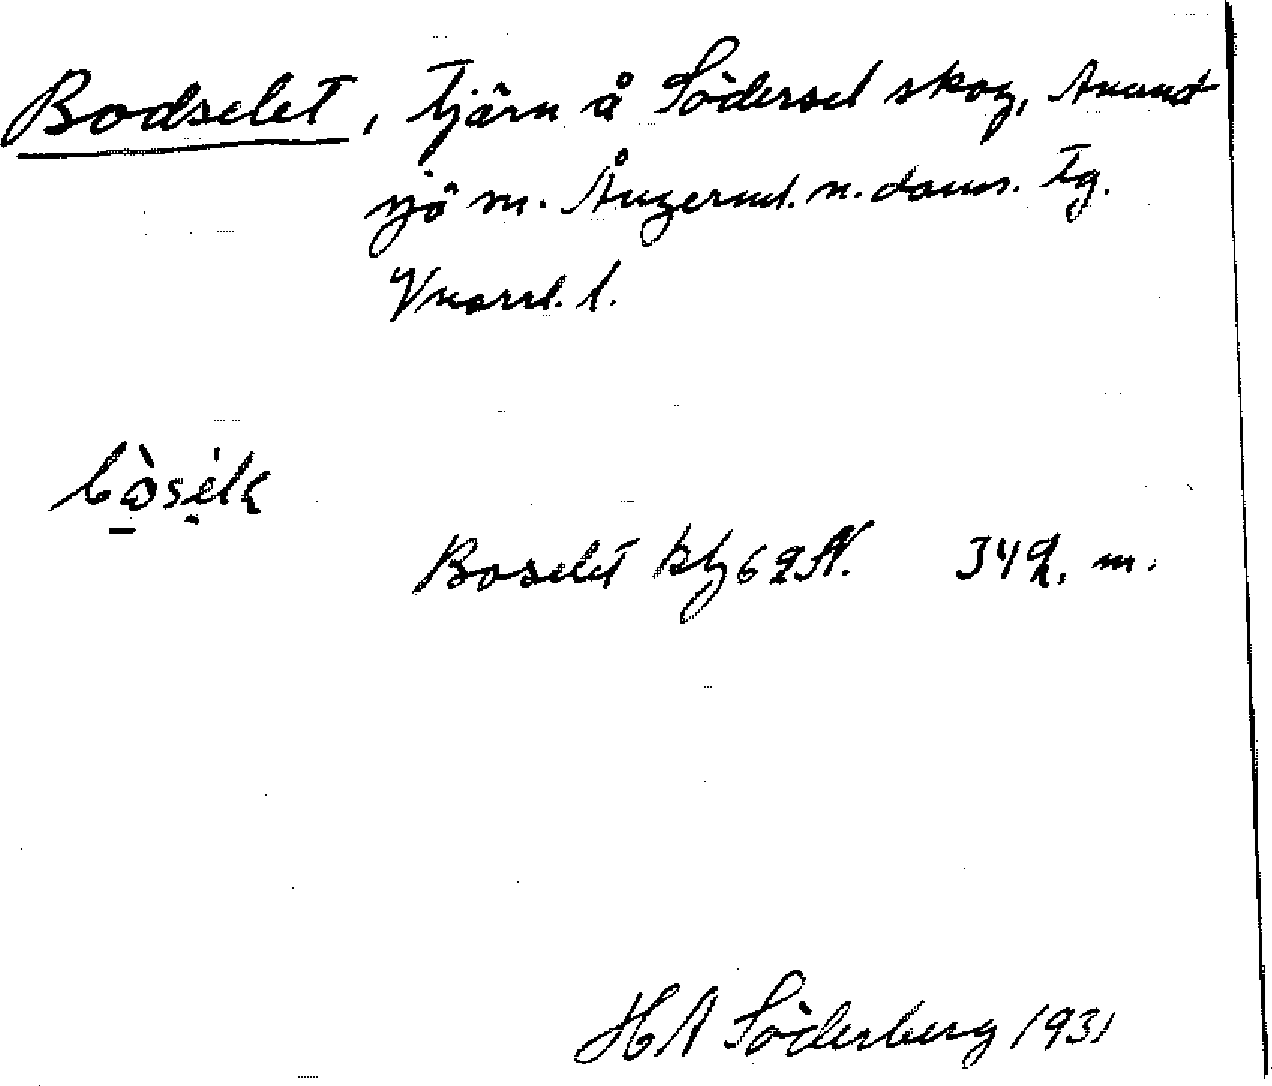 Bodselet, tjärn å Södersel skog, Anund
sjö sn. Ångerml. n. doms. tg.
Vnorrl. l.
Boselet kbl 62 N. 342. m.
H A Söderberg 1931